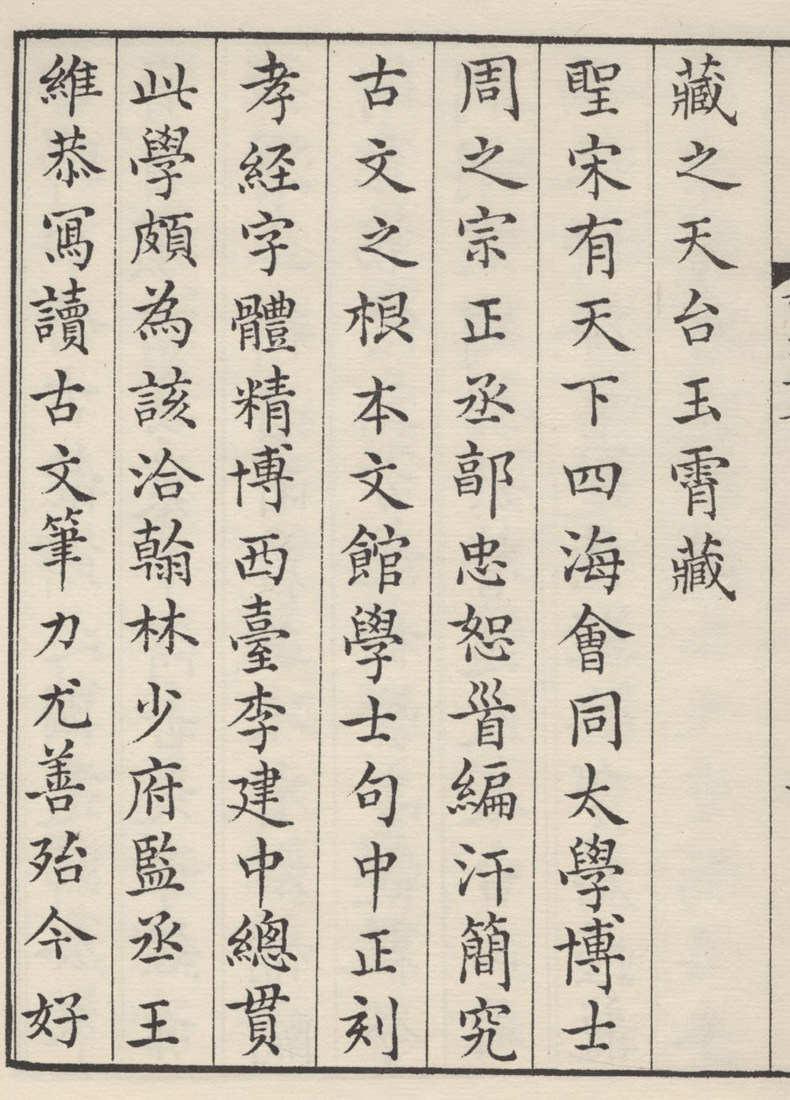 藏之天台玉霄藏
聖宋有天下四海會同太學博士
周之宗正丞郭忠恕首編汗簡究
古文之根本文館學士句中正刻
孝經字體精博西臺李建中總貫
此學頗為該洽翰林少府監丞王
維恭寫讀古文筆力尤善殆今好